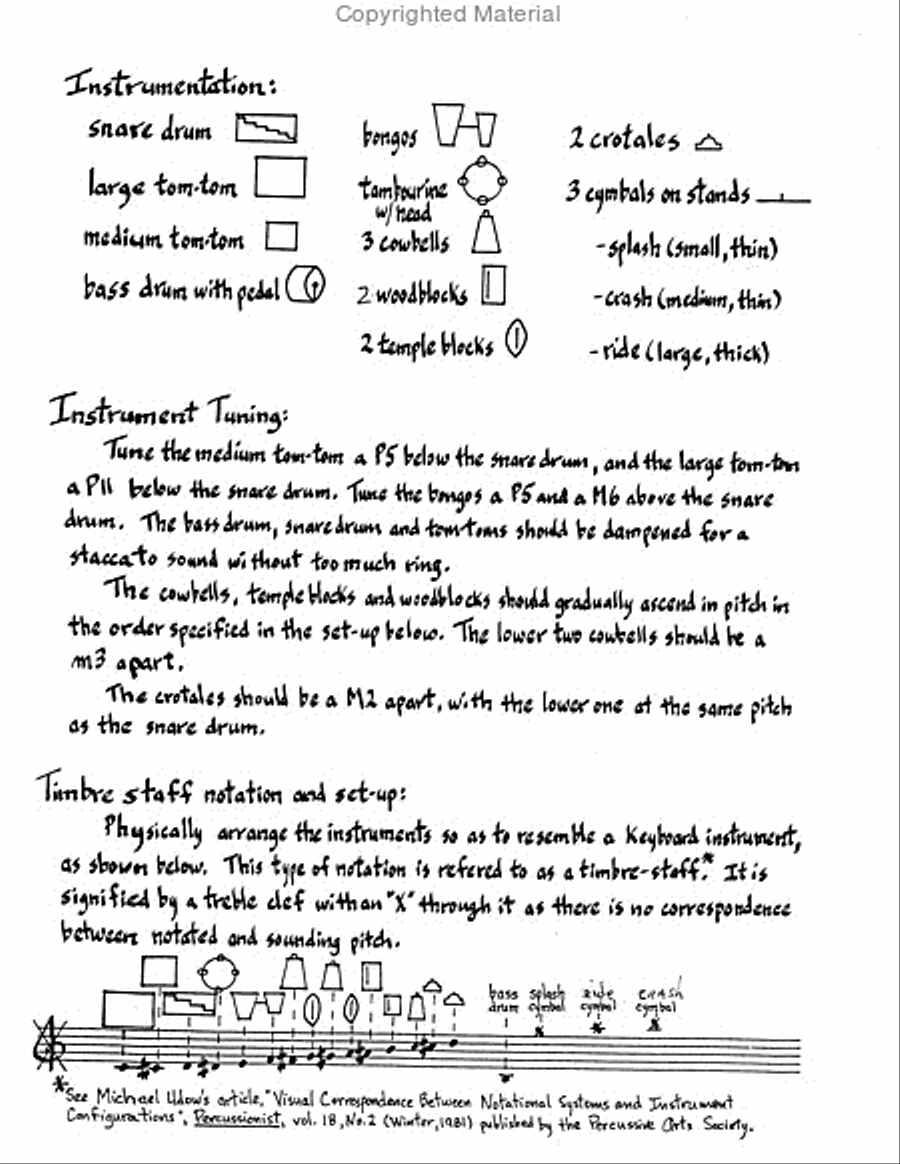 Copyrighted Material
Instrumentation:
snare drum
large tom-tom
medium tom-tom
bass drum with pedal
bongos
tambourine
w/head
3 cowbells
2 woodblocks
2 temple blocks
2 crotales
3 cymbals on stands
-splash (small, thin)
-crash (medium, thin)
-ride (large, thick)
Instrument Tuning:
Tune the medium tom-tom a P5 below the snare drum, and the large tom-tom
a P11 below the snare drum. Tune the bongos a P5 and a M6 above the snare
drum. The bass drum, snare drum and tom-toms should be dampened for a
staccato sound without too much ring.
The cowbells, temple blocks and woodblocks should gradually ascend in pitch in
the order specified in the set-up below. The lower two cowbells should be a
m3 apart.
The crotales should be a M2 apart, with the lower one at the same pitch
as the snare drum.
Timbre staff notation and set-up:
Physically arrange the instruments so as to resemble a Keyboard instrument,
as shown below. This type of notation is refered to as a timbre-staff.* It is
signified by a treble clef with an "X" through it as there is no correspondence
between notated and sounding pitch.
bass drum
splash cymbal
ride cymbal
crash cymbal
*See Michael Udow's article, "Visual Correspondence Between Notational Systems and Instrument
Configurations", Percussionist, vol. 18, No. 2 (Winter, 1981) published by the Percussive Arts Society.